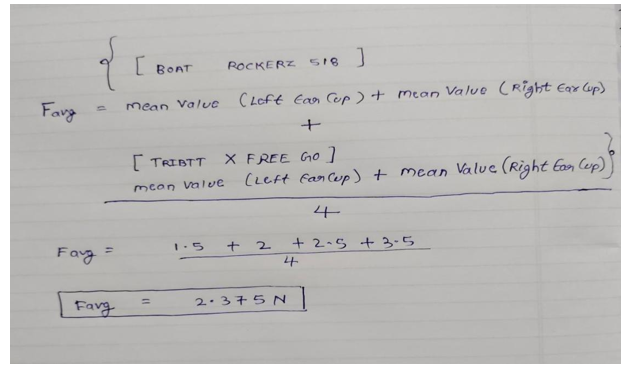 { [ BOAT ROCKERZ 518 ]
Favg = mean value (Left Ear Cup) + mean value (Right Ear Cup)
+
[ TRIBTT X FREE GO ]
mean value (Left Ear Cup) + mean value (Right Ear Cup) }
4
Favg = 1.5 + 2 + 2.5 + 3.5
4
Favg = 2.375 N